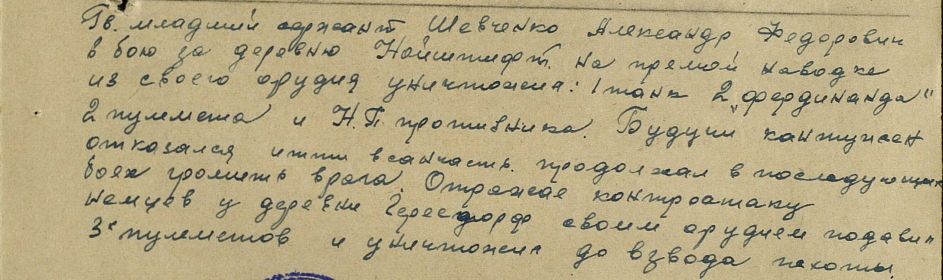 Гв. младший сержант Шевченко Александр Федорович
в бою за деревню Нойштифт. на прямой наводке
из своего орудия уничтожил: 1 танк 2 „фердинанда"
2 пулемета и Н.П. противника. Будучи кантужен
отказался итти в санчасть. продолжал в последующих
боях громить врага. Отражая контратаку
немцев у деревни Гересдорф своим орудием подавил
3х пулеметов и уничтожил до взвода пехоты.